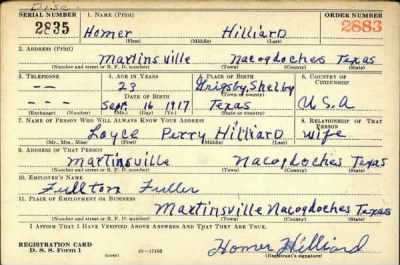 Disc
SERIAL NUMBER 1. NAME (Print) ORDER NUMBER
2835 Homer Hilliard 2883
(First) (Middle) (Last)
2. ADDRESS (Print)
Martinsville Nacogdoches Texas
(Number and street or R. F. D. number) (Town) (County) (State)
3. TELEPHONE 4. AGE IN YEARS 5. PLACE OF BIRTH 6. COUNTRY OF CITIZENSHIP
- - - 23 Grigsby, Shelby
DATE OF BIRTH (Town) (County)
- - - Sept. 16 1917 Texas U.S.A
(Exchange) (Number) (Mo.) (Day) (Yr.) (State or country)
7. NAME OF PERSON WHO WILL ALWAYS KNOW YOUR ADDRESS 8. RELATIONSHIP OF THAT PERSON
Loyce Perry Hilliard wife
(Mr., Mrs., Miss) (First) (Middle) (Last)
9. ADDRESS OF THAT PERSON
Martinsville Nacogdoches Texas
(Number and street or R. F. D. number) (Town) (County) (State)
10. EMPLOYER'S NAME
Fulltom Fuller
11. PLACE OF EMPLOYMENT OR BUSINESS
Martinsville Nacogdoches Texas
(Number and street or R. F. D. number) (Town) (County) (State)
I AFFIRM THAT I HAVE VERIFIED ABOVE ANSWERS AND THAT THEY ARE TRUE.
REGISTRATION CARD
D. S. S. Form 1 (over) 16-17105 Homer Hilliard
(Registrant's signature)